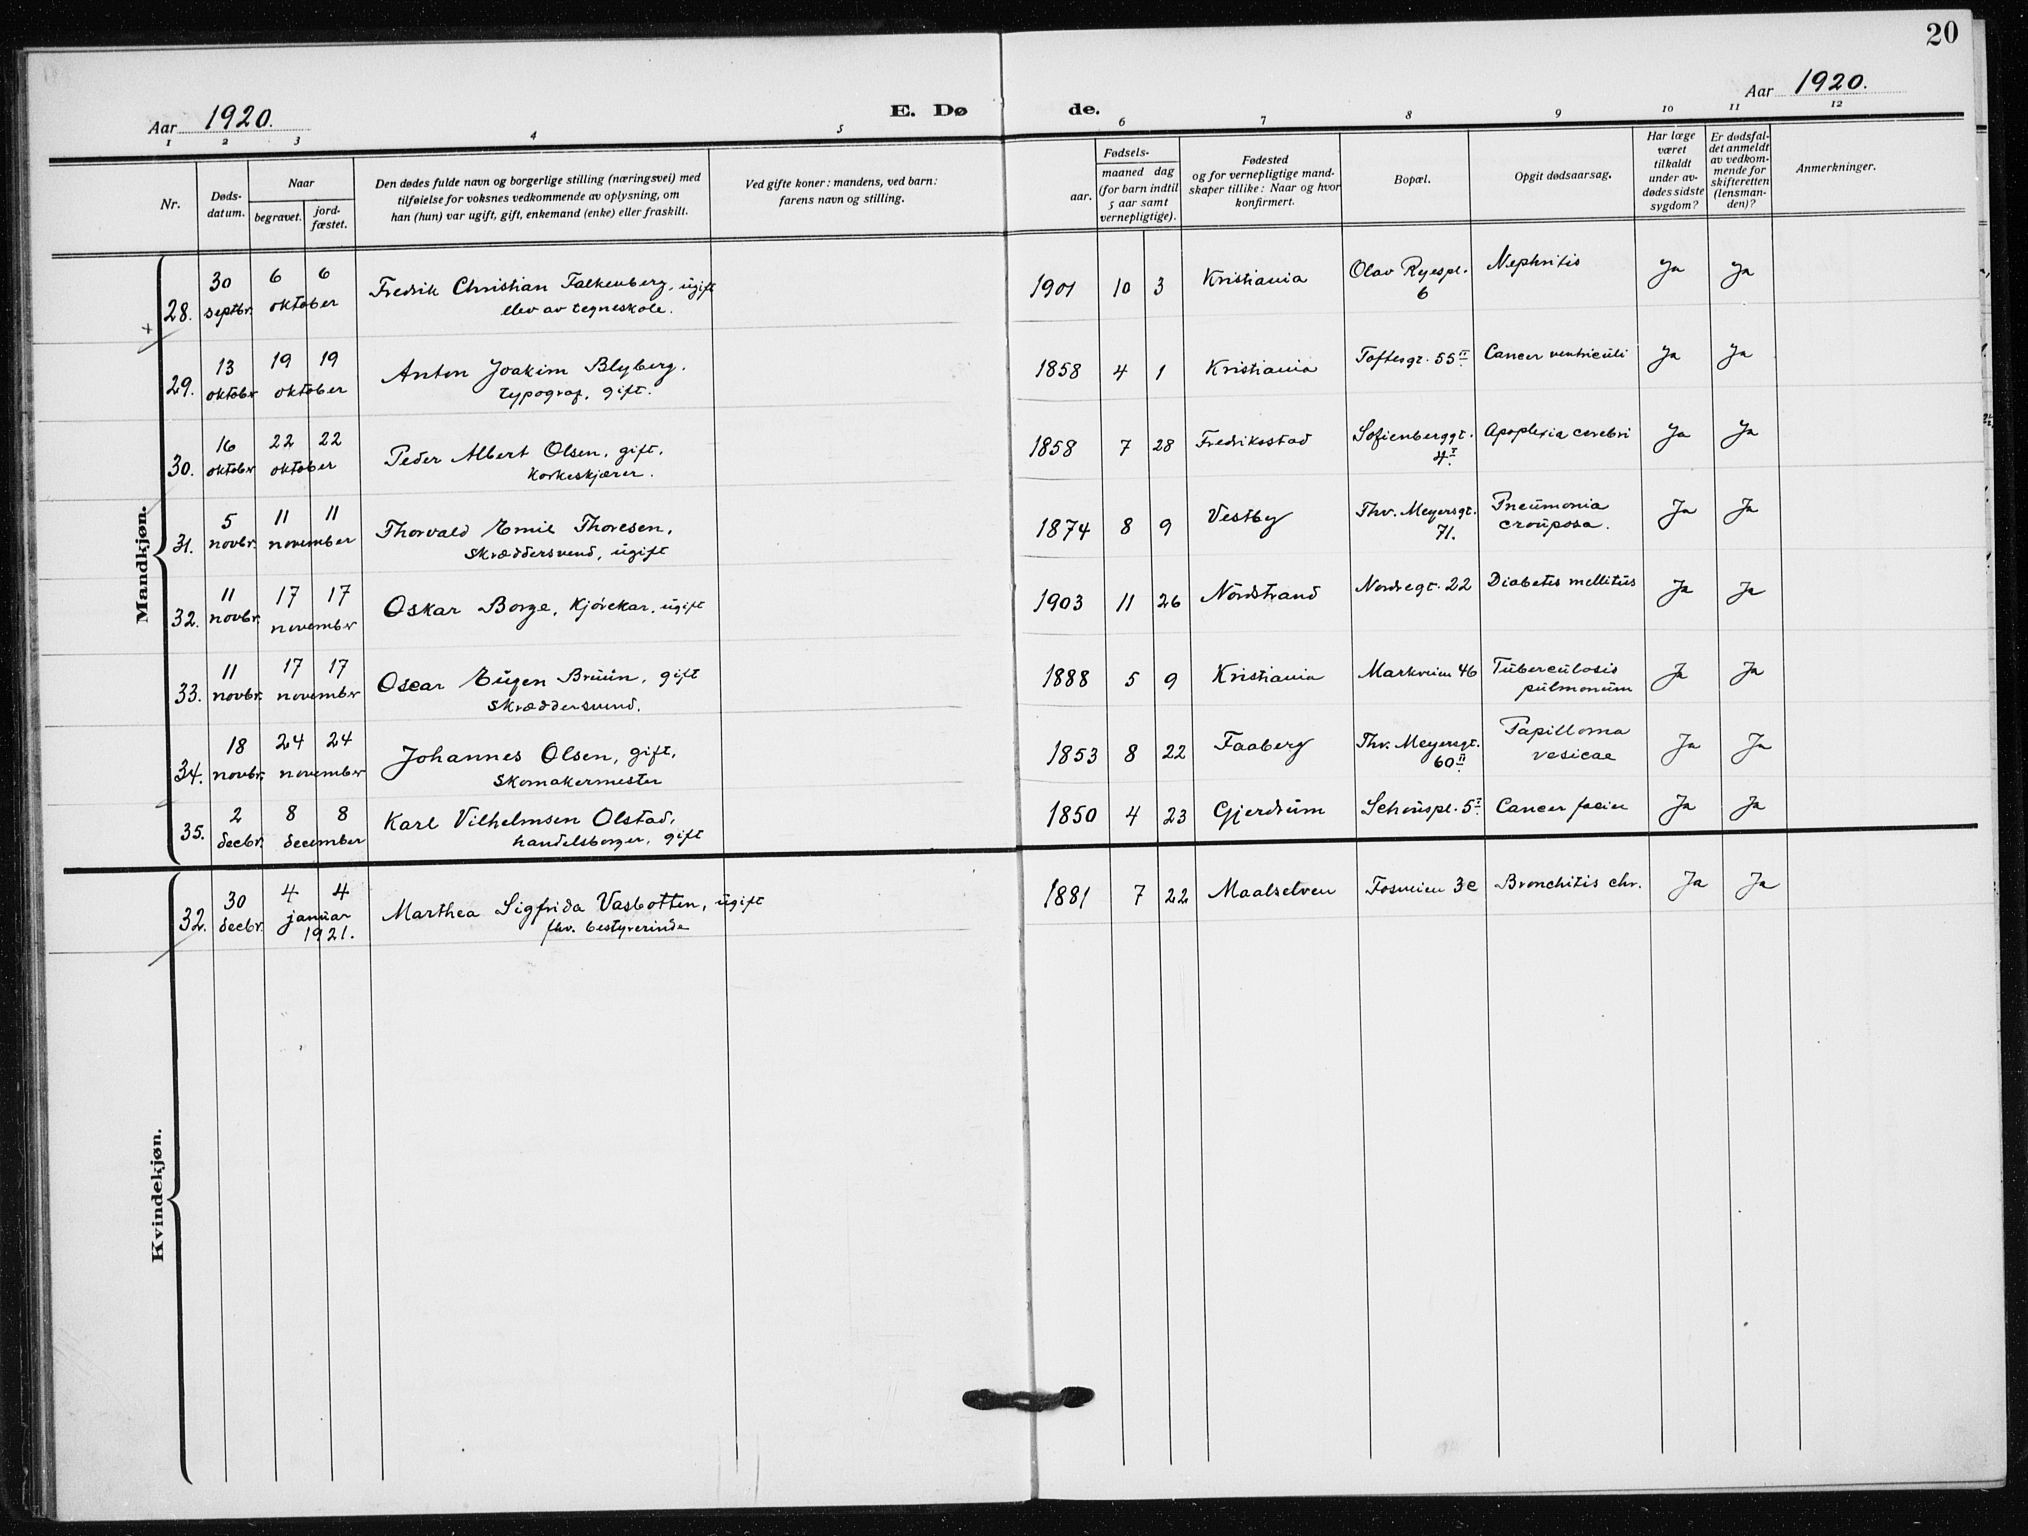 20
Aar 1920.
E. Døde.
Aar 1920.
1 2 3 4 5 6 7 8 9 10 11 12
Nr.
Døds-
datum.
Naar
begravet.
jord-
fæstet.
Den dødes fulde navn og borgerlige stilling (næringsvei) med
tilføielse for voksnes vedkommende av oplysning, om
han (hun) var ugift, gift, enkemand (enke) eller fraskilt.
Ved gifte koner: mandens, ved barn:
farens navn og stilling.
Fødsels-
aar.
maaned dag
(for barn indtil
5 aar samt
vernepligtige).
Fødested
og for vernepligtige mand-
skaper tillike: Naar og hvor
konfirmert.
Bopæl.
Opgit dødsaarsag.
Har læge
været
tilkaldt
under av-
dødes sidste
sygdom?
Er dødsfal-
det anmeldt
av vedkom-
mende for
skifteretten
(lensman-
den)?
Anmerkninger.
Mandkjøn.
28. 30 septbr. 6 6 oktober Fredrik Christian Falkenberg, ugift
elev av tegneskole.
1901 10 3 Kristiania Olav Ryespl. 6 Nephritis Ja Ja
29. 13 oktober 19 19 oktober Anton Joakim Blyberg.
typograf, gift.
1858 4 1 Kristiania Toftesgt. 55 II Cancer ventriculi Ja Ja
30. 16 oktober 22 22 oktober Peder Albert Olsen, gift,
Korkeskjærer.
1858 7 28 Fredriksstad Sofienberggt. 4 I Apoplexia cerebri Ja Ja
31. 5 novbr. 11 11 november Thorvald Emil Thoresen,
Skræddersvend, ugift
1874 8 9 Vestby Thv. Meyersgt. 71. Pneumonia crouposa. Ja Ja
32. 11 novbr. 17 17 november Oskar Borge, Kjørekar, ugift
1903 11 26 Nordstrand Nordregt. 22 Diabetes mellitus Ja Ja
33. 11 novbr. 17 17 november Oscar Eugen Bruun, gift
Skræddersvend.
1888 5 9 Kristiania Markveien 46 Tuberculosis pulmonum Ja Ja
34. 18 novbr. 24 24 november Johannes Olsen, gift,
Skomakermester
1853 8 22 Faaberg Thv. Meyersgt. 60 II Papilloma vesicae Ja Ja
35. 2 decbr. 8 8 december Karl Vilhelmsen Olstad,
handelsborger, gift
1850 4 23 Gjerdrum Schouspl. 5 I Cancer faciei Ja Ja
Kvindekjøn.
32. 30 decbr. 4 4 januar 1921. Marthea Sigfrida Vasbotten, ugift
fhv. bestyrerinde
1881 7 22 Maalselven Fosveien 3c Bronchitis chr. Ja Ja